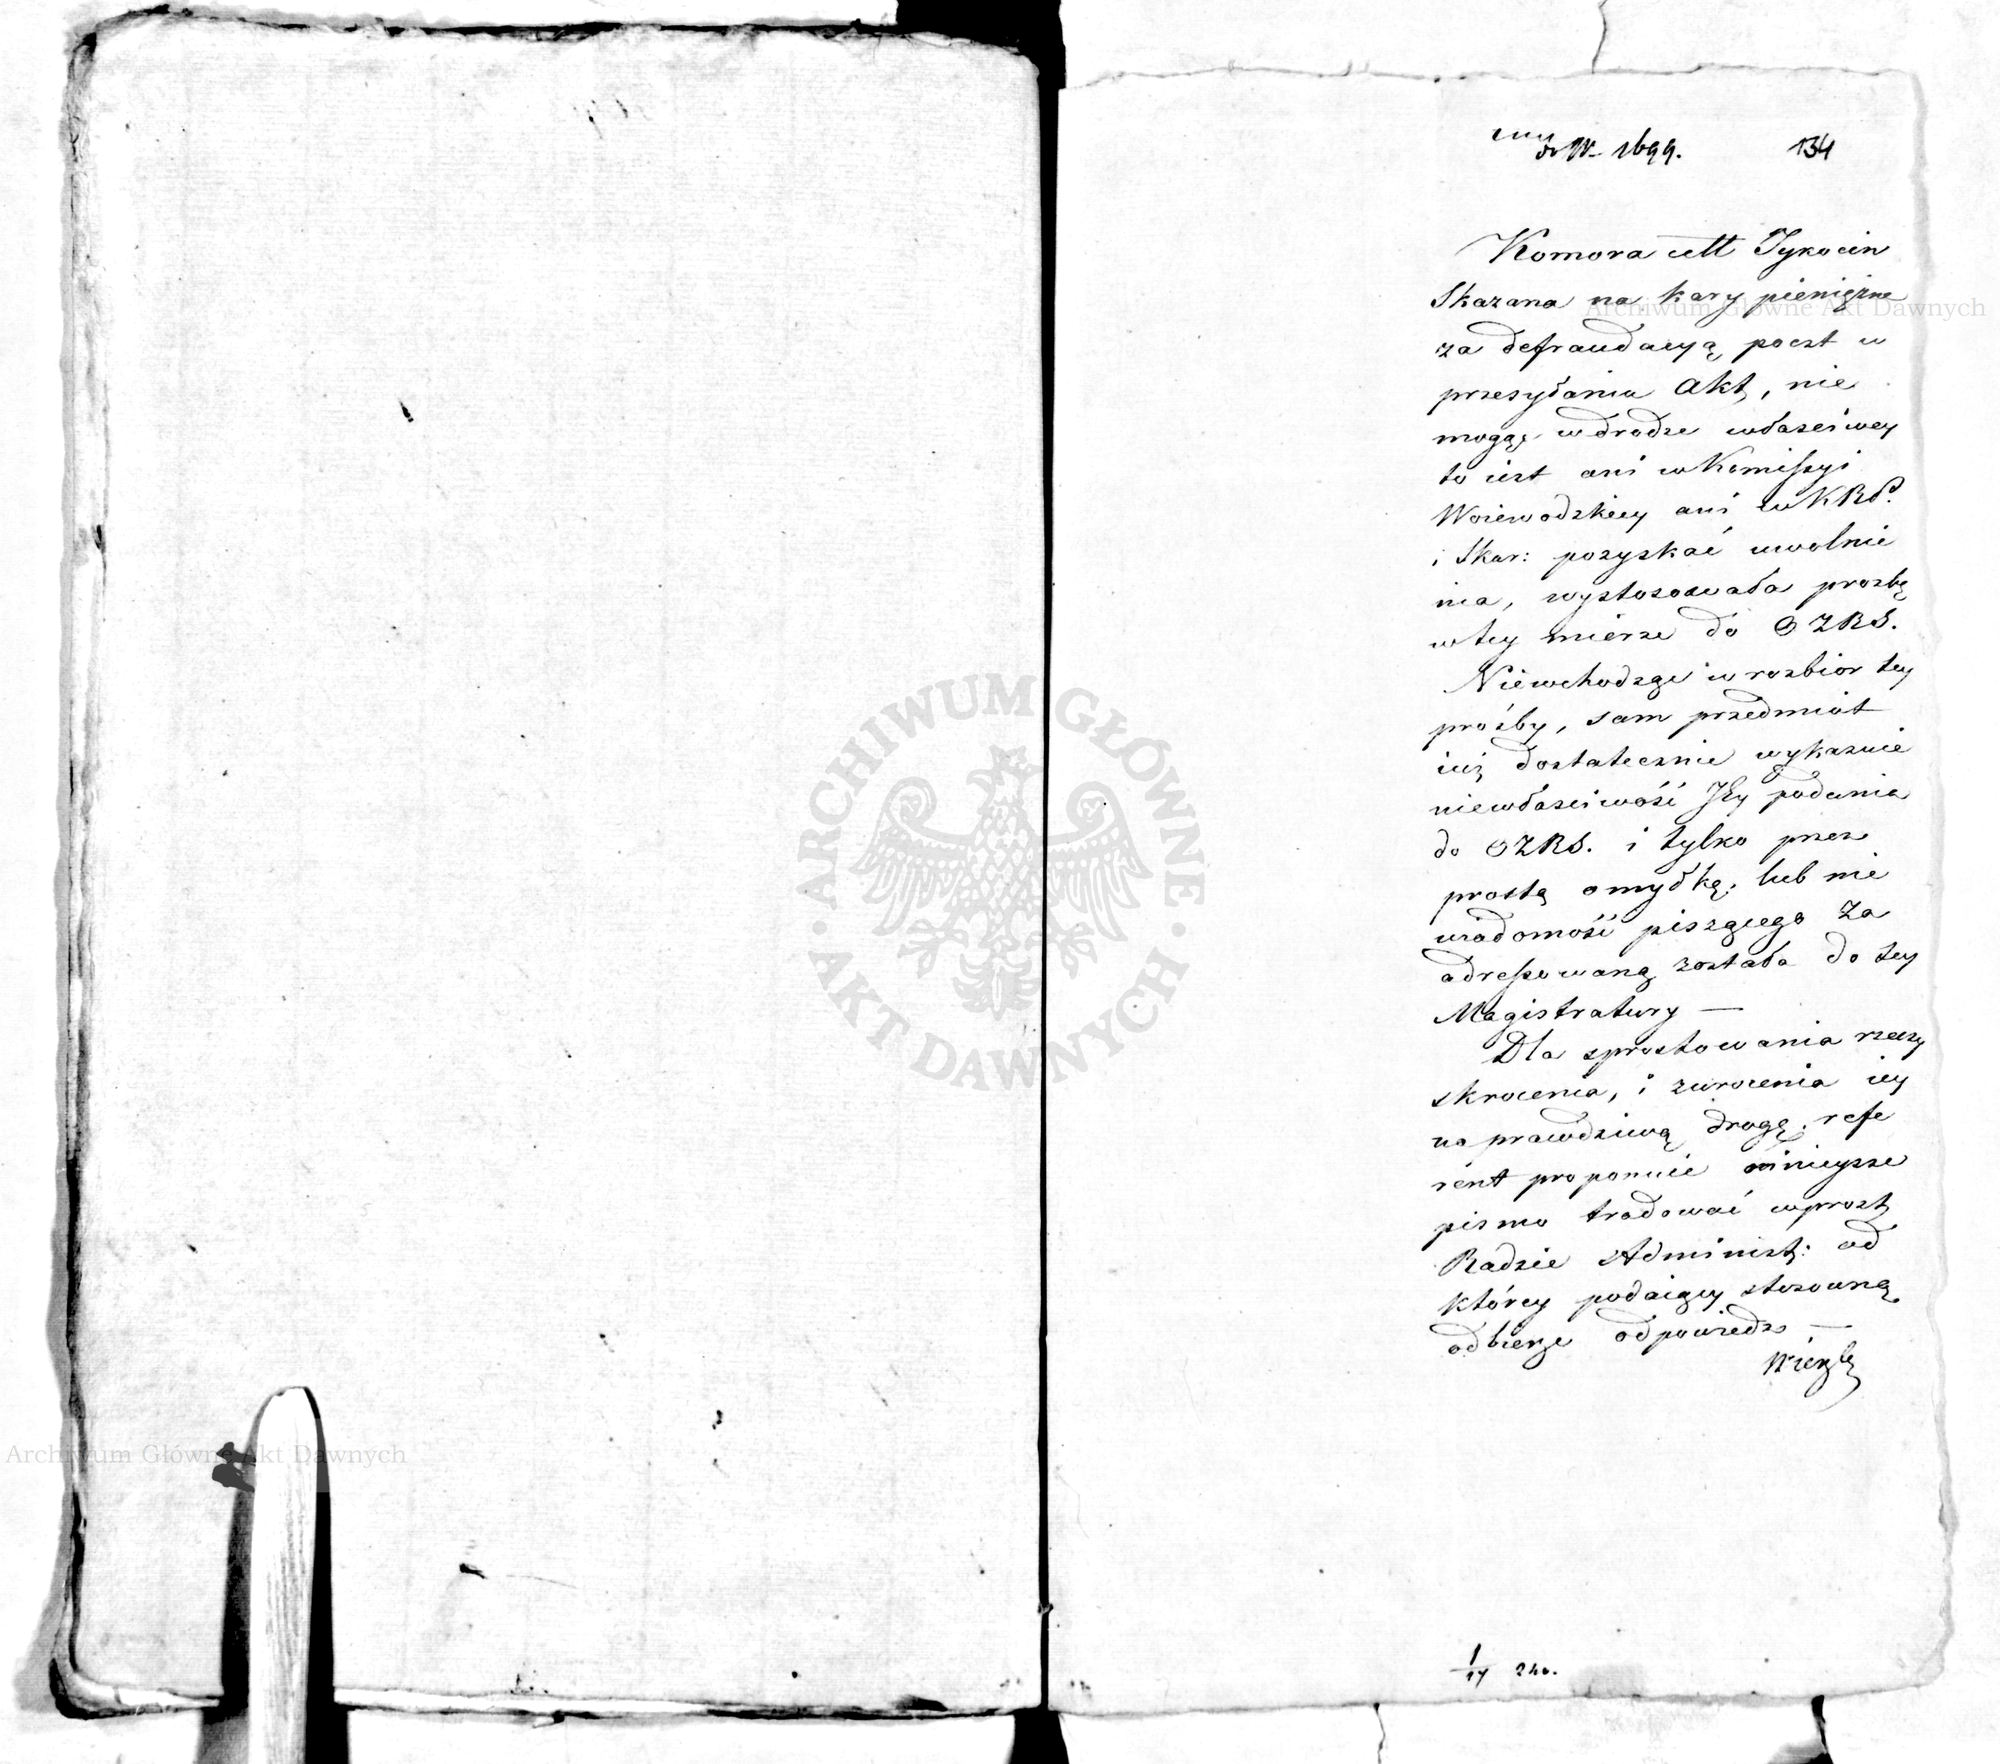 do N 1699.
134
Komora cełł Tykocin
Skazana na kary pieniężne
za defraudacyą poczt w
przesyłaniu Akt, nie
mogąc w drodze właściwey
to iest ani w Komissyi
Woiewodzkiey ani w KRP.
i Skar: pozyskać uwolnie
nia, wystosowała prosbę
w tey mierze do OZRS.
Niewchodząc w rozbior tey
proźby, sam przedmiot
iuż dostatecznie wykazuie
niewłaściwość Jey podania
do OZRS. i tylko przez
prostą omyłkę, lub nie
wiadomość piszącego za
adressowaną została do tey
Magistratury —
Dla sprostowania rzeczy
skrocenia, i zwrocenia iey
na prawdziwą drogę, refe
rent proponuie ninieysze
pismo tradować wprost
Radzie Administ: od
którey podaiący stosowną
odbierze odpowiedz —
1/17
ARCHIWUM GŁÓWNE AKT DAWNYCH
Archiwum Główne Akt Dawnych
Archiwum Główne Akt Dawnych